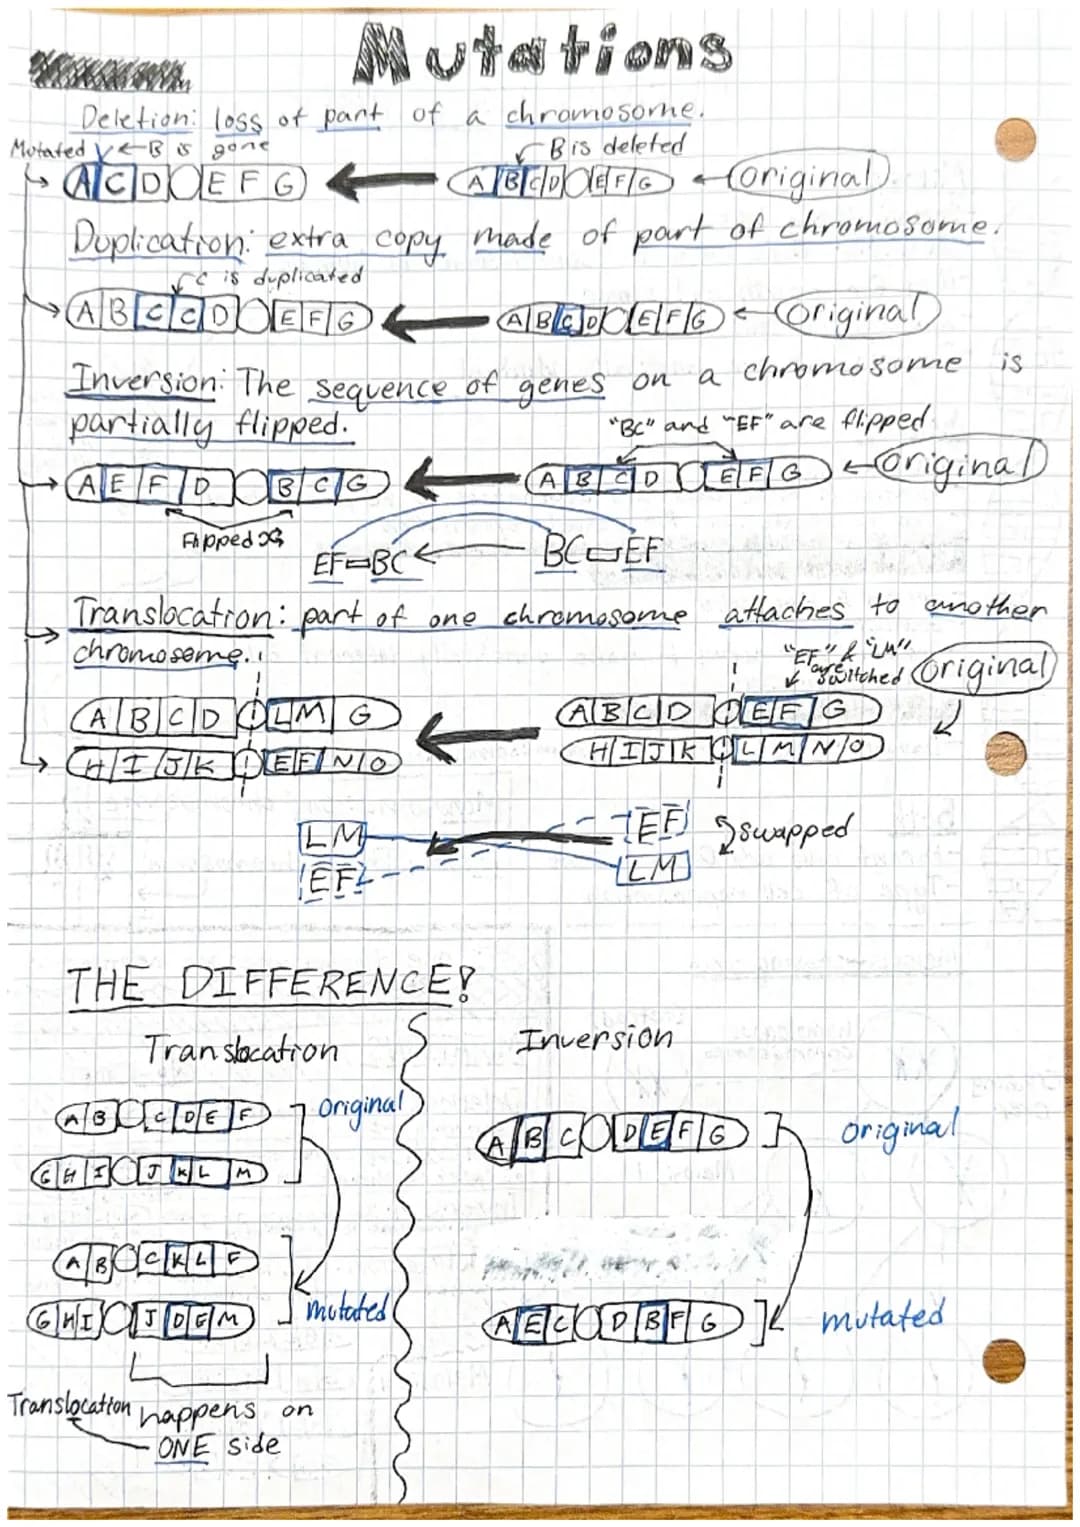 Mutations
Deletion: loss of part of a chromosome.
Mutated ← B is gone
B is deleted
A C D E F G
A B C D E F G
original
Duplication: extra copy made of part of chromosome.
C is duplicated
A B C C D E F G
A B C D E F G
original
Inversion: The sequence of genes on a chromosome is
partially flipped.
"BC" and "EF" are flipped
A E F D B C G
A B C D E F G
original
Flipped
EF BC
BC EF
Translocation: part of one chromosome attaches to another
chromosome.
"EF" & "LM"
are
switched
original
A B C D L M G
A B C D E F G
H I J K E F N O
H I J K L M N O
LM
EF
EF
LM
swapped
THE DIFFERENCE!
Translocation
Inversion
A B C D E F
original
G H I J K L M
A B C D E F G
original
A B C K L F
G H I J D E M
mutated
A E C D B F G
mutated
Translocation happens on
ONE side